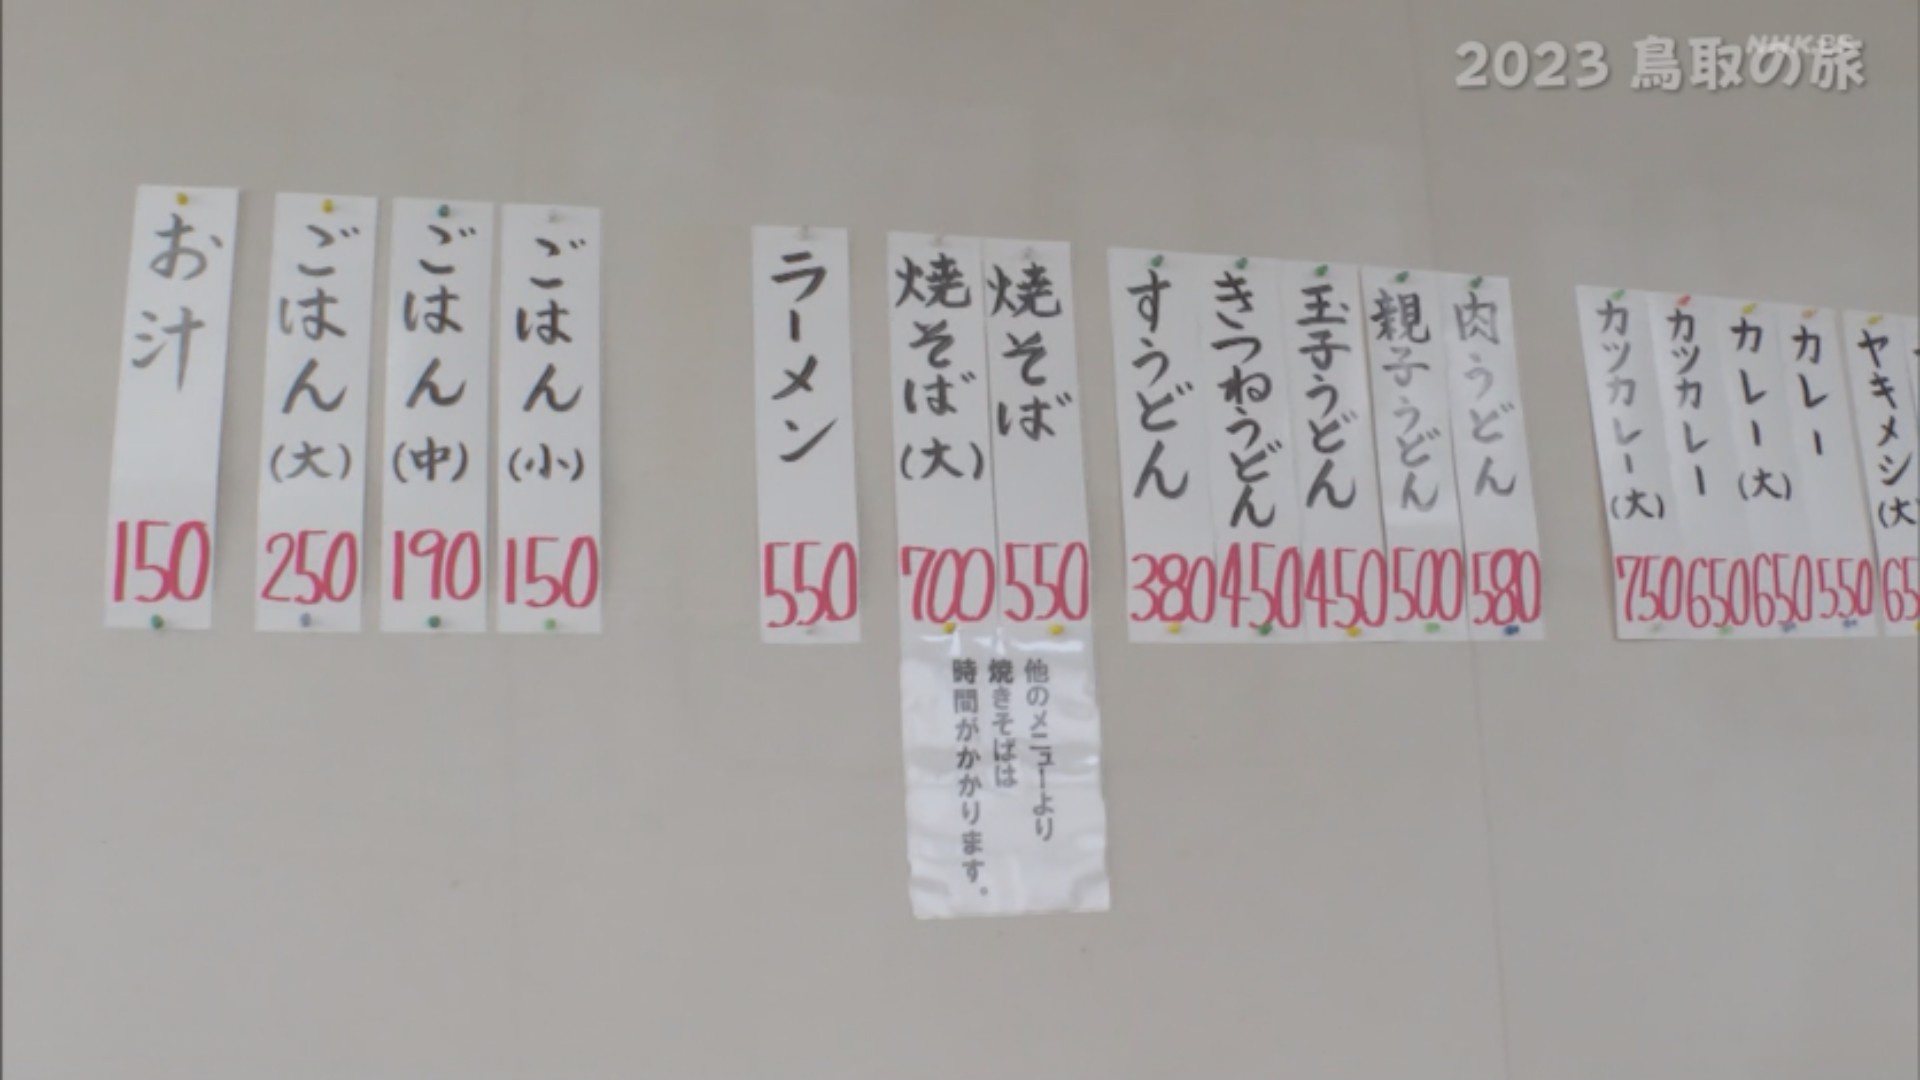 2023 鳥取の旅
NHK BS
ヤキメシ(大
65
カレー
550
カレー(大)
650
カツカレー
650
カツカレー(大)
750
肉うどん
580
親子うどん
500
玉子うどん
450
きつねうどん
450
すうどん
380
焼そば
550
焼そば(大)
700
他のメニューより
焼きそばは
時間がかかります。
ラーメン
550
ごはん(小)
150
ごはん(中)
190
ごはん(大)
250
お汁
150